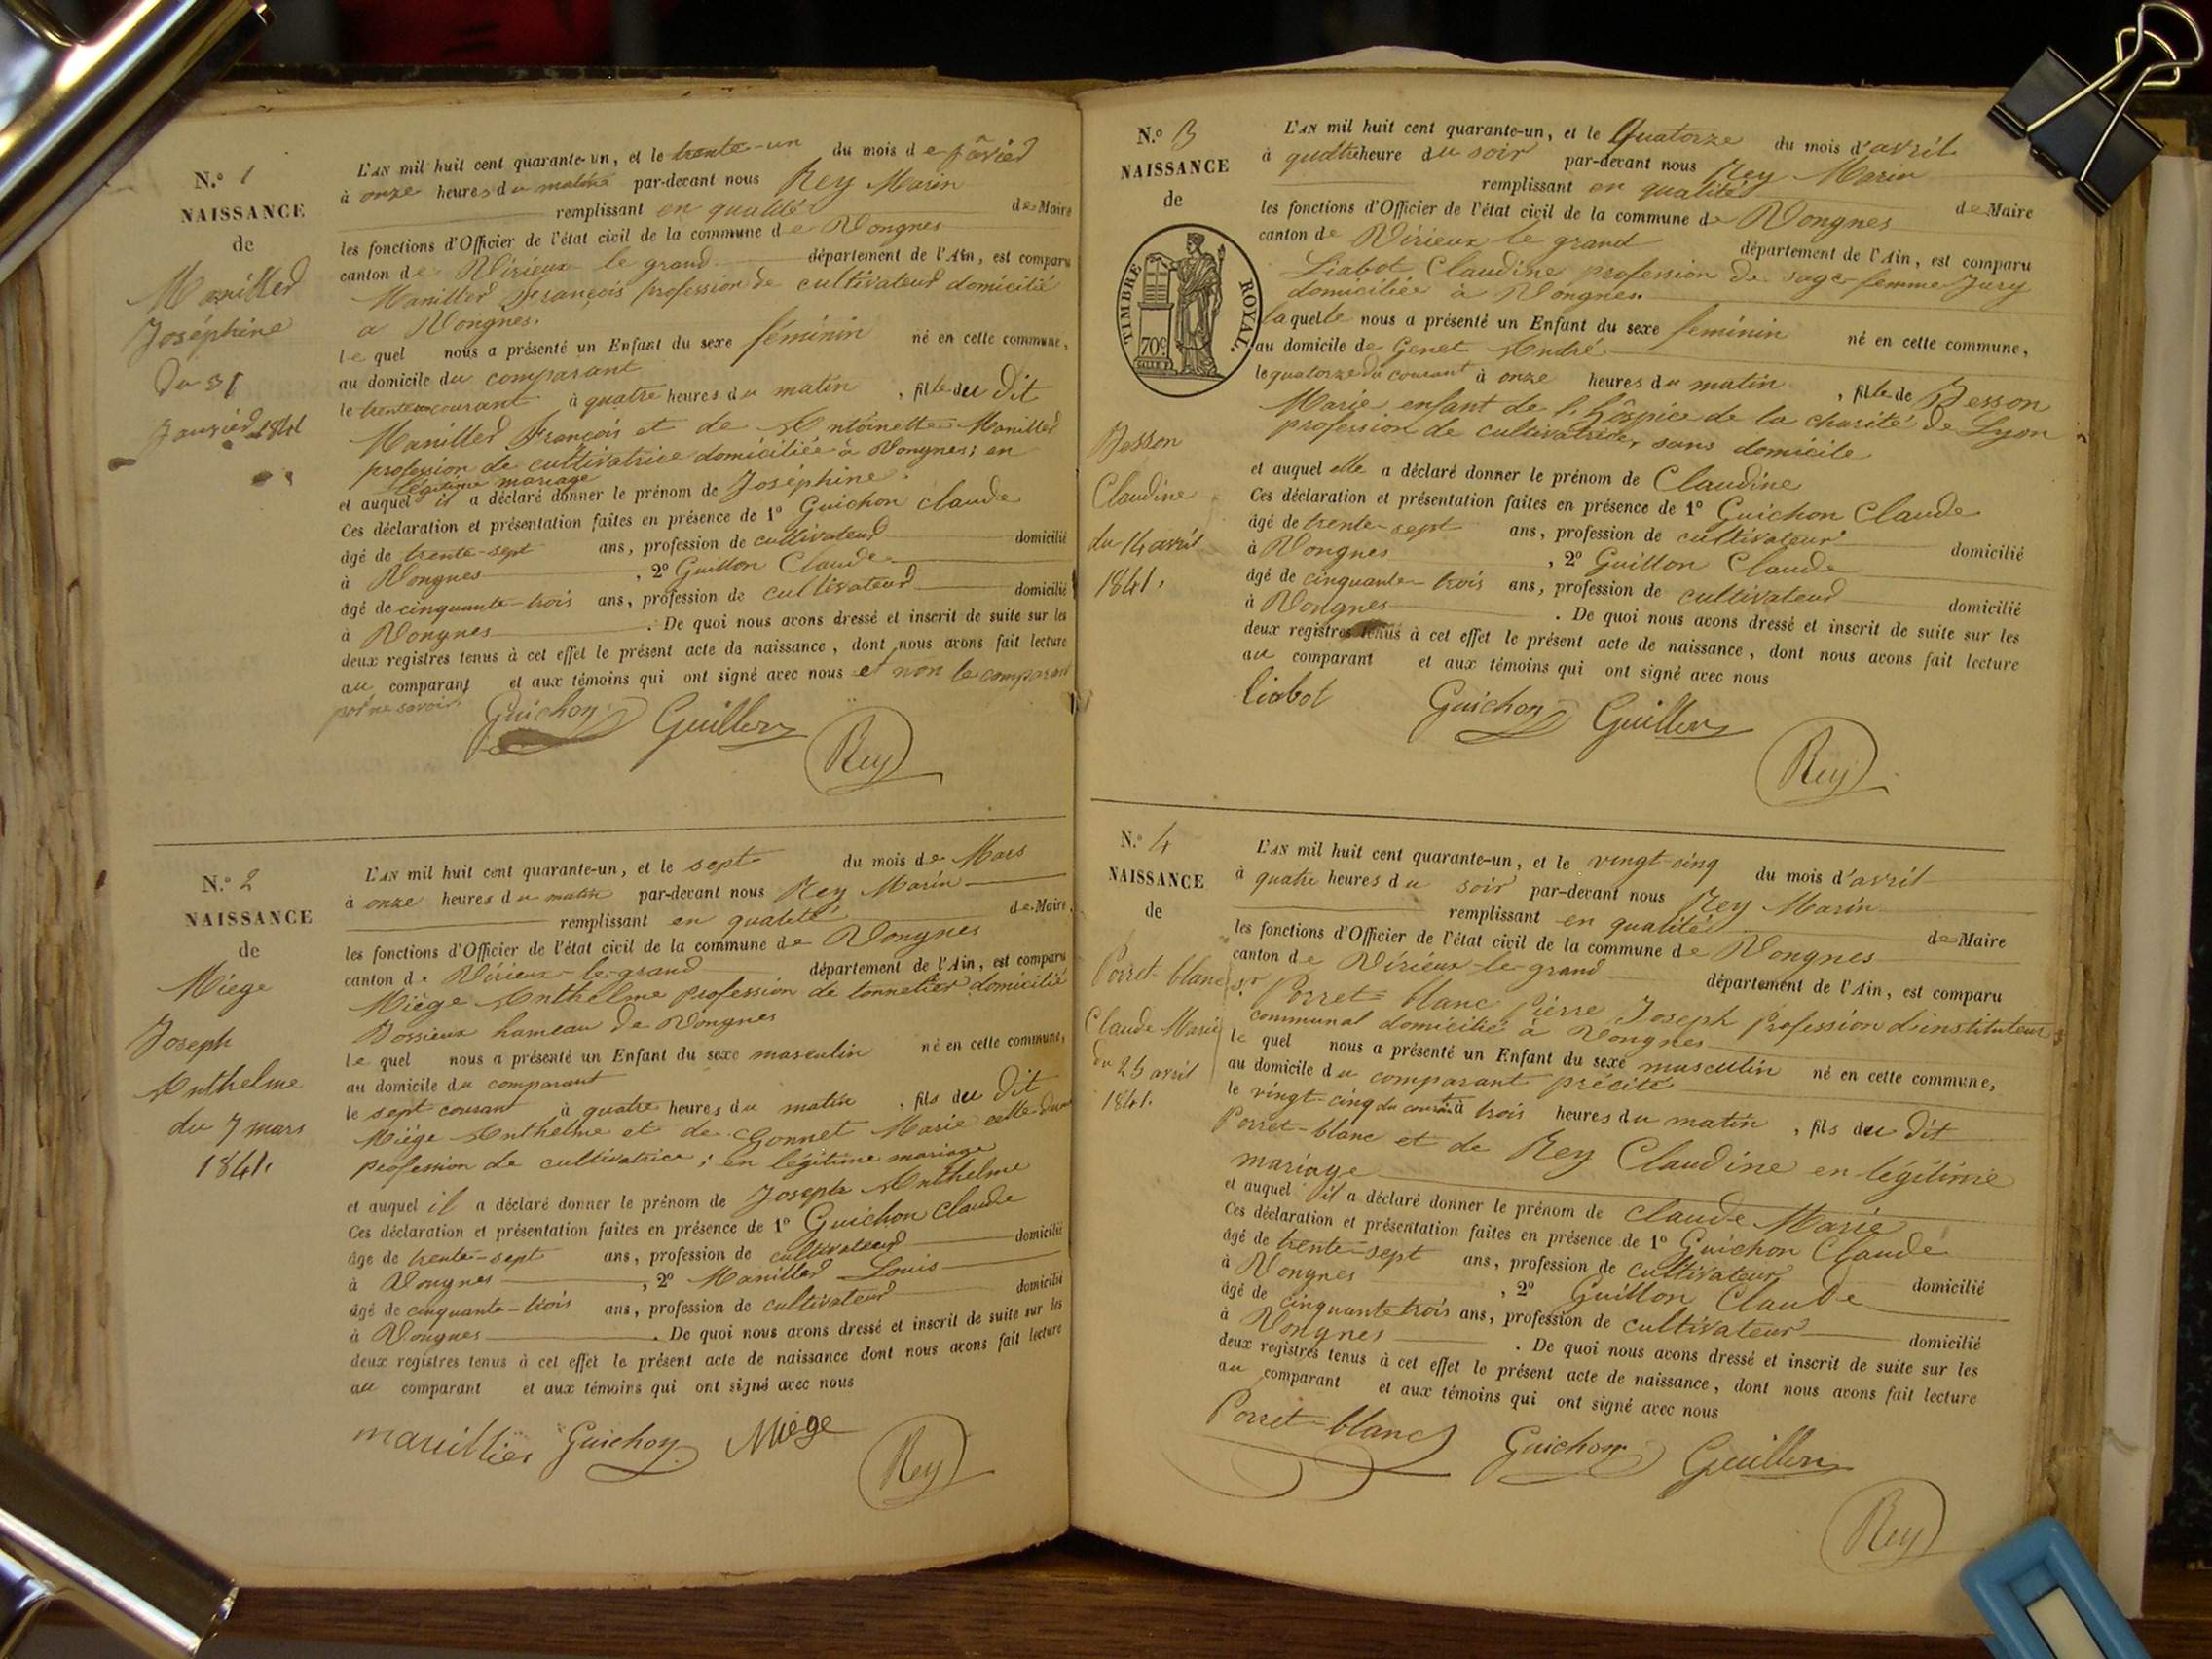 N.º 1
NAISSANCE
de
Manillier
Joséphine
du 31
Janvier 1841
L'AN mil huit cent quarante-un, et le trente-un du mois de
à onze heures du matin par-devant nous Rey Marin
remplissant en qualité de Maire
les fonctions d'Officier de l'état civil de la commune de Vongnes
canton de Virieux le grand département de l'Ain, est comparu
Manillier François profession de cultivateur domicilié
a Vongnes.
le quel nous a présenté un Enfant du sexe féminin né en cette commune,
au domicile du comparant
le trente un courant à quatre heures du matin, fille du dit
Manillier François et de Antoinette Manillier
profession de cultivatrice domiciliée à Vongnes; en
légitime mariage
et auquel il a déclaré donner le prénom de Joséphine.
Ces déclaration et présentation faites en présence de 1º Guichon Claude
âgé de trente-sept ans, profession de cultivateur domicilié
à Vongnes, 2º Guillon Claude
âgé de cinquante-trois ans, profession de cultivateur domicilié
à Vongnes. De quoi nous avons dressé et inscrit de suite sur les
deux registres tenus à cet effet le présent acte de naissance, dont nous avons fait lecture
au comparant et aux témoins qui ont signé avec nous et non le comparant
pour ne savoir.
Guichon Guillon Rey
N.º 2
NAISSANCE
de
Miège
Joseph
Anthelme
du 7 mars
1841.
L'AN mil huit cent quarante-un, et le sept du mois de Mars
à onze heures du matin par-devant nous Rey Marin
remplissant en qualité de Maire
les fonctions d'Officier de l'état civil de la commune de Vongnes
canton de Virieux-le-grand département de l'Ain, est comparu
Miège Anthelme profession de tonnelier domicilié
Bossieux hameau de Vongnes
le quel nous a présenté un Enfant du sexe masculin né en cette commune,
au domicile du comparant
le sept courant à quatre heures du matin, fils du dit
Miège Anthelme et de Gonnet Marie
profession de cultivatrice; en légitime mariage
et auquel il a déclaré donner le prénom de Joseph Anthelme
Ces déclaration et présentation faites en présence de 1º Guichon Claude
âge de trente-sept ans, profession de cultivateur domicilié
à Vongnes, 2º Manillier Louis
âgé de cinquante-trois ans, profession de cultivateur domicilié
à Vongnes. De quoi nous avons dressé et inscrit de suite sur les
deux registres tenus à cet effet le présent acte de naissance dont nous avons fait lecture
au comparant et aux témoins qui ont signé avec nous
manillier Guichon Miège
Rey
N.º 3
NAISSANCE
de
TIMBRE ROYAL.
70c
Besson
Claudine
du 14 avril
1841.
L'AN mil huit cent quarante-un, et le Quatorze du mois d'avril
à quatre heure du soir par-devant nous Rey Marin
remplissant en qualité de Maire
les fonctions d'Officier de l'état civil de la commune de Vongnes
canton de Virieux le grand département de l'Ain, est comparu
Liabot Claudine profession de sage-femme Jury
domiciliée à Vongnes.
laquelle nous a présenté un Enfant du sexe feminin né en cette commune,
au domicile de Genet André
le quatorze du courant à onze heures du matin, fille de Besson
Marie enfant de l'hôspice de la charité de Lyon
profession de cultivatrice, sans domicile
et auquel elle a déclaré donner le prénom de Claudine
Ces déclaration et présentation faites en présence de 1º Guichon Claude
âgé de trente-sept ans, profession de cultivateur domicilié
à Vongnes, 2º Guillon Claude
âgé de cinquante-trois ans, profession de cultivateur domicilié
à Vongnes. De quoi nous avons dressé et inscrit de suite sur les
deux registres tenus à cet effet le présent acte de naissance, dont nous avons fait lecture
au comparant et aux témoins qui ont signé avec nous
liabot Guichon Guillon
Rey
N.º 4
NAISSANCE
de
Porret-blanc
Claude Marie
du 25 avril
1841.
L'AN mil huit cent quarante-un, et le vingt-cinq du mois d'avril
à quatre heures du soir par-devant nous Rey Marin
remplissant en qualité de Maire
les fonctions d'Officier de l'état civil de la commune de Vongnes
canton de Virieux-le-grand département de l'Ain, est comparu
sr Porret-blanc Pierre Joseph profession d'instituteur
communal domicilié à Vongnes
le quel nous a présenté un Enfant du sexe masculin né en cette commune,
au domicile du comparant précité
le vingt-cinq du courant à trois heures du matin, fils du dit
Porret-blanc et de Rey Claudine en légitime
mariage
et auquel il a déclaré donner le prénom de Claude Marie
Ces déclaration et présentation faites en présence de 1º Guichon Claude
âgé de trente-sept ans, profession de cultivateur domicilié
à Vongnes, 2º Guillon Claude
âgé de cinquante trois ans, profession de cultivateur domicilié
à Vongnes. De quoi nous avons dressé et inscrit de suite sur les
deux registres tenus à cet effet le présent acte de naissance, dont nous avons fait lecture
au comparant et aux témoins qui ont signé avec nous
Porret-blanc Guichon Guillon
Rey